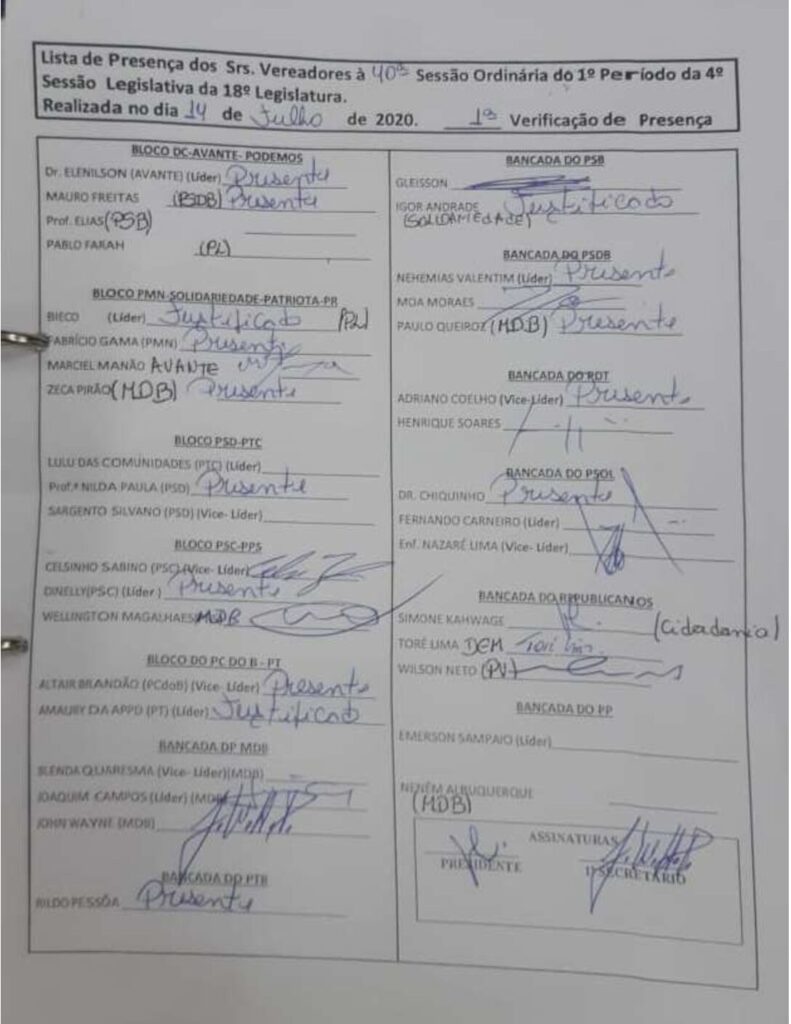 Lista de Presença dos Srs. Vereadores à 40ª Sessão Ordinária do 1º Período da 4ª
Sessão Legislativa da 18ª Legislatura.
Realizada no dia 14 de Julho de 2020. 1ª Verificação de Presença
BLOCO DC-AVANTE- PODEMOS
Dr. ELENILSON (AVANTE) (Líder) Presente
MAURO FREITAS (PSDB) Presente
Prof. ELIAS (PSB)
PABLO FARAH (PL)
BLOCO PMN-SOLIDARIEDADE-PATRIOTA-PR
BIECO (Líder) Justificado (PL)
FABRÍCIO GAMA (PMN) Presente
MARCIEL MANÃO AVANTE
ZECA PIRÃO (MDB) Presente
BLOCO PSD-PTC
LULU DAS COMUNIDADES (PTC) (Líder)
Prof.ª NILDA PAULA (PSD) Presente
SARGENTO SILVANO (PSD) (Vice- Líder)
BLOCO PSC-PPS
CELSINHO SABINO (PSC) (Vice- Líder)
DINELLY(PSC) (Líder ) Presente
WELLINGTON MAGALHAES MDB
BLOCO DO PC DO B - PT
ALTAIR BRANDÃO (PCdoB) (Vice- Líder) Presente
AMAURY DA APPD (PT) (Líder) Justificado
BANCADA DP MDB
BLENDA QUARESMA (Vice- Líder)(MDB)
JOAQUIM CAMPOS (Líder) (MDB)
JOHN WAYNE (MDB)
BANCADA DO PTB
RILDO PESSÔA Presente
BANCADA DO PSB
GLEISSON
IGOR ANDRADE Justificado
(SOLIDARIEDADE)
BANCADA DO PSDB
NEHEMIAS VALENTIM (Líder) Presente
MOA MORAES
PAULO QUEIROZ (MDB) Presente
BANCADA DO PDT
ADRIANO COELHO (Vice-Líder) Presente
HENRIQUE SOARES
BANCADA DO PSOL
DR. CHIQUINHO Presente
FERNANDO CARNEIRO (Líder)
Enf. NAZARÉ LIMA (Vice- Líder)
BANCADA DO REPUBLICANOS
SIMONE KAHWAGE (Cidadania)
TORÉ LIMA DEM Toré Lima
WILSON NETO (PV)
BANCADA DO PP
EMERSON SAMPAIO (Líder)
NENÉM ALBUQUERQUE
(MDB)
ASSINATURAS
PRESIDENTE 1º SECRETÁRIO